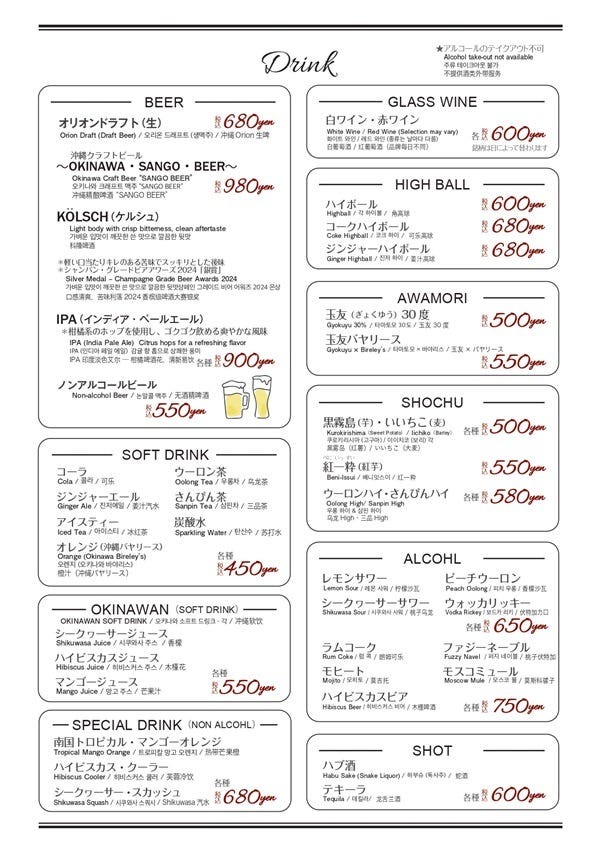 Drink
★アルコールのテイクアウト不可
Alcohol take-out not available
주류 테이크아웃 불가
不提供酒类外带服务
BEER
オリオンドラフト(生)
税込680yen
Orion Draft (Draft Beer) / 오리온 드래프트 (생맥주) / 沖縄 Orion 生啤
沖縄クラフトビール
〜OKINAWA・SANGO・BEER〜
Okinawa Craft Beer "SANGO BEER"
오키나와 크래프트 맥주 "SANGO BEER"
税込980yen
沖縄精酿啤酒 "SANGO BEER"
KÖLSCH(ケルシュ)
Light body with crisp bitterness, clean aftertaste
가벼운 입맛이 깨끗한 쓴 맛으로 깔끔한 뒷맛
科隆啤酒
*軽い口当たりキレのある苦味でスッキリとした後味
*シャンパン・グレードビアアワーズ2024「銀賞」
Silver Medal – Champagne Grade Beer Awards 2024
口感清爽、苦味利落 2024 香槟级啤酒大赛银奖
IPA(インディア・ペールエール)
*柑橘系のホップを使用し、ゴクゴク飲める爽やかな風味
IPA (India Pale Ale) Citrus hops for a refreshing flavor
IPA (인디아 페일 에일) 감귤 향 홉으로 상쾌한 풍미
IPA 印度淡色艾尔 — 柑橘啤酒花、清新易饮
各種 税込900yen
ノンアルコールビール
Non-alcohol Beer / 논알콜 맥주 / 无酒精啤酒
税込550yen
SOFT DRINK
コーラ
Cola / 콜라 / 可乐
ウーロン茶
Oolong Tea / 우롱차 / 乌龙茶
ジンジャーエール
Ginger Ale / 진저에일 / 姜汁汽水
さんぴん茶
Sanpin Tea / 삼핀차 / 三品茶
アイスティー
Iced Tea / 아이스티 / 冰红茶
炭酸水
Sparkling Water / 탄산수 / 苏打水
オレンジ(沖縄バヤリース)
Orange (Okinawa Bireley's)
오렌지 (오키나와 바야리스)
橙汁(沖縄バヤリース)
各種 税込450yen
OKINAWAN (SOFT DRINK)
OKINAWAN SOFT DRINK / 오키나와 소프트 드링크・각 / 沖縄软饮
シークヮーサージュース
Shikuwasa Juice / 시쿠와사 주스 / 香檬
ハイビスカスジュース
Hibiscus Juice / 히비스커스 주스 / 木槿花
マンゴージュース
Mango Juice / 망고 주스 / 芒果汁
各種 税込550yen
SPECIAL DRINK (NON ALCOHL)
南国トロピカル・マンゴーオレンジ
Tropical Mango Orange / 트로피칼 망고 오렌지 / 热带芒果橙
ハイビスカス・クーラー
Hibiscus Cooler / 히비스커스 쿨러 / 芙蓉冷饮
シークヮーサー・スカッシュ
Shikuwasa Squash / 시쿠와사 스쿼시 / Shikuwasa 汽水
各種 税込680yen
GLASS WINE
白ワイン・赤ワイン
White Wine / Red Wine (Selection may vary)
화이트 와인 / 레드 와인 (종류는 날마다 다름)
白葡萄酒 / 红葡萄酒(品牌每日不同)
各 税込600yen
銘柄は日によって替わります
HIGH BALL
ハイボール
Highball / 각 하이볼 / 角高球
税込600yen
コークハイボール
Coke Highball / 코크 하이 / 可乐高球
税込680yen
ジンジャーハイボール
Ginger Highball / 진저 하이 / 姜汁高球
税込680yen
AWAMORI
玉友(ぎょくゆう)30度
Gyokuyu 30% / 타마토모 30도 / 玉友 30度
税込500yen
玉友バヤリース
Gyokuyu × Bireley's / 타마토모 × 바야리스 / 玉友 × バヤリース
税込550yen
SHOCHU
黒霧島(芋)・いいちこ(麦)
Kurokirishima (Sweet Potato) / Iichiko (Barley)
쿠로키리시마 (고구마) / 이이치코 (보리) 각
黒霧島(红薯)/ いいちこ(大麦)
各種 税込500yen
紅一粋(紅芋)
Beni-Issui / 베니잇스이 / 红一粋
税込550yen
ウーロンハイ・さんぴんハイ
Oolong High/ Sanpin High
우롱 하이 & 삼핀 하이
乌龙 High・三品 High
各種 税込580yen
ALCOHL
レモンサワー
Lemon Sour / 레몬 사워 / 柠檬沙瓦
ピーチウーロン
Peach Oolong / 피치 우롱 / 香檬沙瓦
シークヮーサーサワー
Shikuwasa Sour / 시쿠와사 사워 / 桃子乌龙
ウォッカリッキー
Vodka Rickey / 보드카 리키 / 伏特加力口
各種 税込650yen
ラムコーク
Rum Coke / 럼 콕 / 朗姆可乐
ファジーネーブル
Fuzzy Navel / 퍼지 네이블 / 桃子伏特加
モヒート
Mojito / 모히토 / 莫吉托
モスコミュール
Moscow Mule / 모스코 뮬 / 莫斯科骡子
ハイビスカスビア
Hibiscus Beer / 히비스커스 비어 / 木槿啤酒
各種 税込750yen
SHOT
ハブ酒
Habu Sake (Snake Liquor) / 하부슈 (독사주) / 蛇酒
テキーラ
Tequila / 데킬라 / 龙舌兰酒
各種 税込600yen